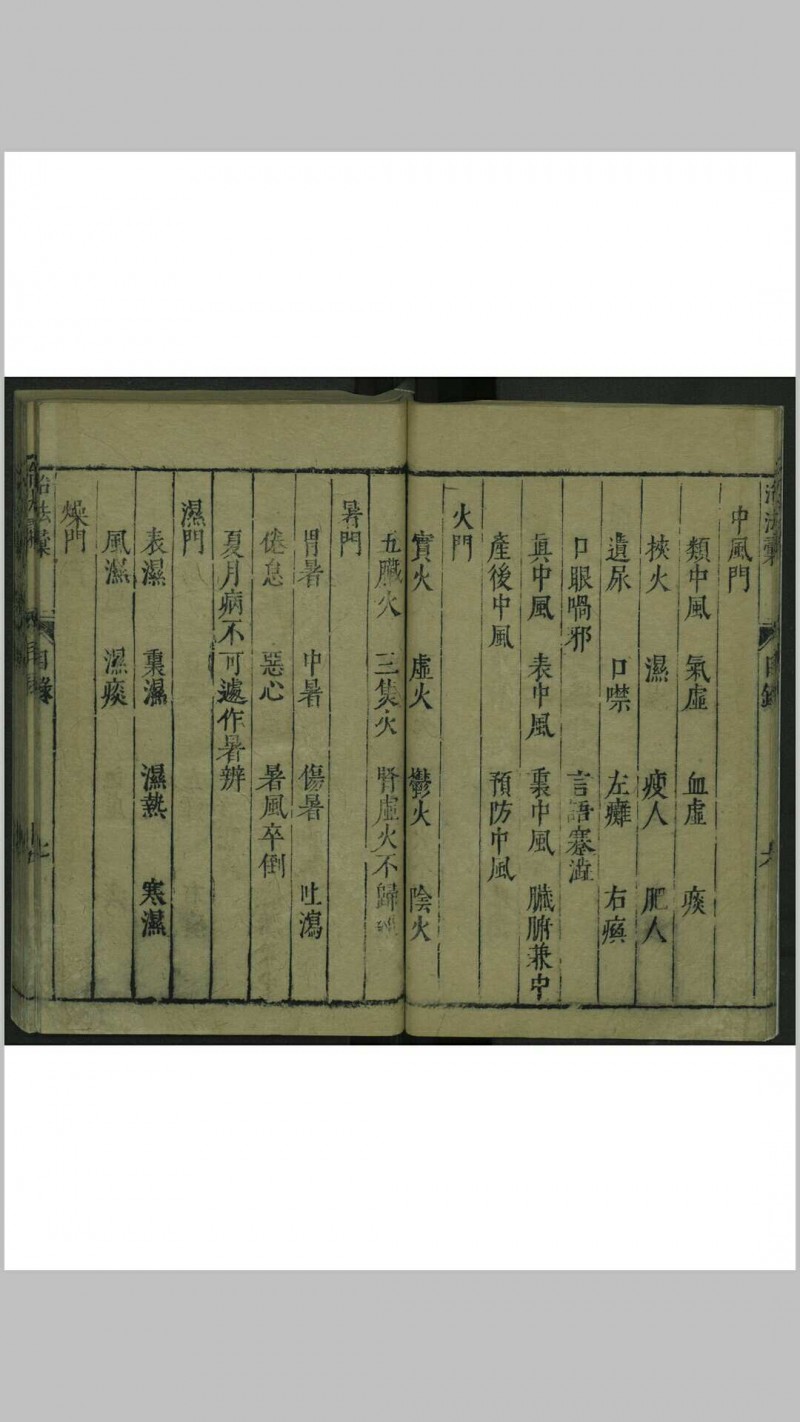 治法彙 目錄
中風門
類中風 氣虛 血虛 痰
挾火 濕 瘦人 肥人
遺尿 口噤 左癱 右瘓
口眼喎邪 言語蹇澁
眞中風 表中風 裏中風 臟腑兼中
產後中風 預防中風
火門
實火 虛火 鬱火 陰火
五臟火 三隻火 腎虛火不歸
暑門
胃暑 中暑 傷暑 吐瀉
倦怠 惡心 暑風卒倒
夏月病不可遽作暑辨
濕門
表濕 裏濕 濕熱 寒濕
風濕 濕痰
燥門
治法彙 目錄